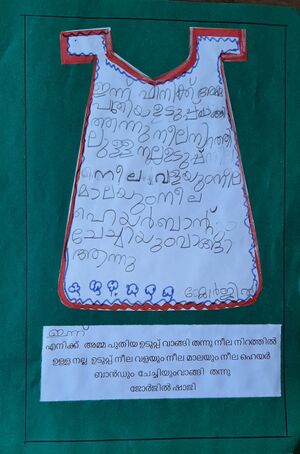 ഇന്ന് എനിക്ക് അമ്മ
പുതിയ ഉടുപ്പ് വാങ്ങി
തന്നു നീല നിറത്തി
ലുള്ള നല്ല ഉടുപ്പ്
നീല വളയും നീല
മാലയും നീല
ഹെയർബാന്റ്
ചേച്ചിയും വാങ്ങി
തന്നു
ജോർജിൽ
ഇന്ന്
എനിക്ക് അമ്മ പുതിയ ഉടുപ്പ് വാങ്ങി തന്നു നീല നിറത്തിൽ
ഉള്ള നല്ല ഉടുപ്പ് നീല വളയും നീല മാലയും നീല ഹെയർ
ബാൻഡും ചേച്ചിയുംവാങ്ങി തന്നു
ജോർജിൽ ഷാജി